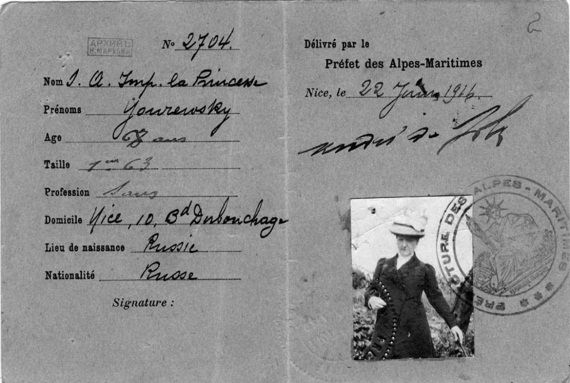 АРХИВЪ
Nº 2704.
Nom S. A. Imp. la Princesse
Prénoms Yourewsky
Age ans
Taille 1m 63
Profession Sans
Domicile Nice, 10, Bd Dubouchage
Lieu de naissance Russie
Nationalité Russe
Signature :
2
Délivré par le
Préfet des Alpes-Maritimes
Nice, le 22 Juin 1916
André de
PRÉFECTURE DES ALPES-MARITIMES